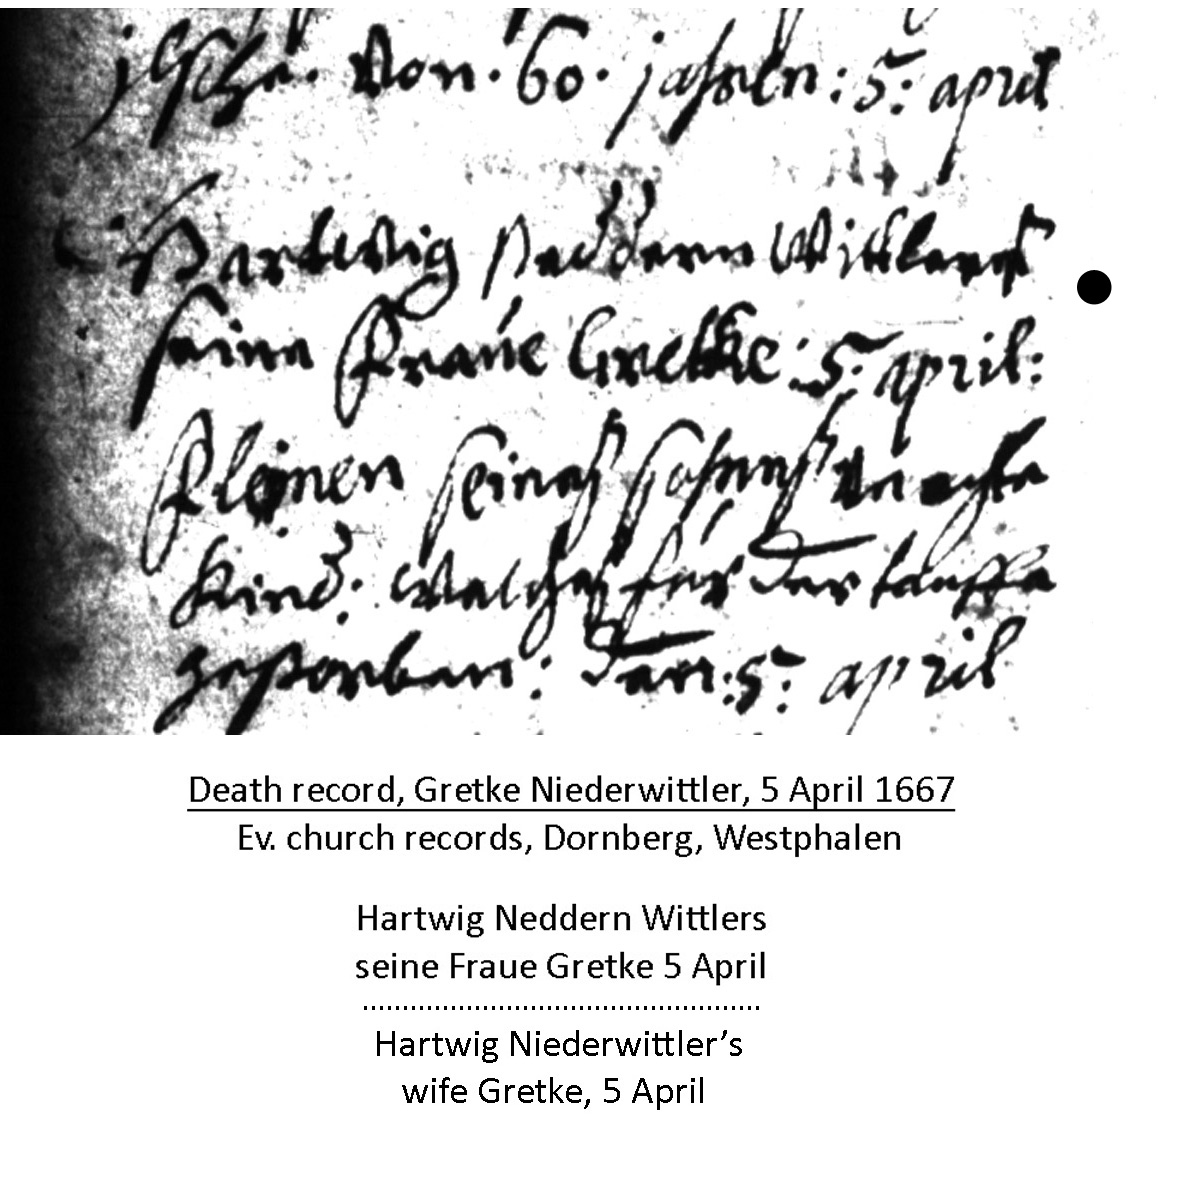 Von · 60 · jahren : 5 : april
Hartwig Neddern Wittlers
seine Fraue Gretke : 5 : april :
seines sohns
Kind : welches für der tauffe
gestorben : den : 5 : april
Death record, Gretke Niederwittler, 5 April 1667
Ev. church records, Dornberg, Westphalen
Hartwig Neddern Wittlers
seine Fraue Gretke 5 April
Hartwig Niederwittler’s
wife Gretke, 5 April